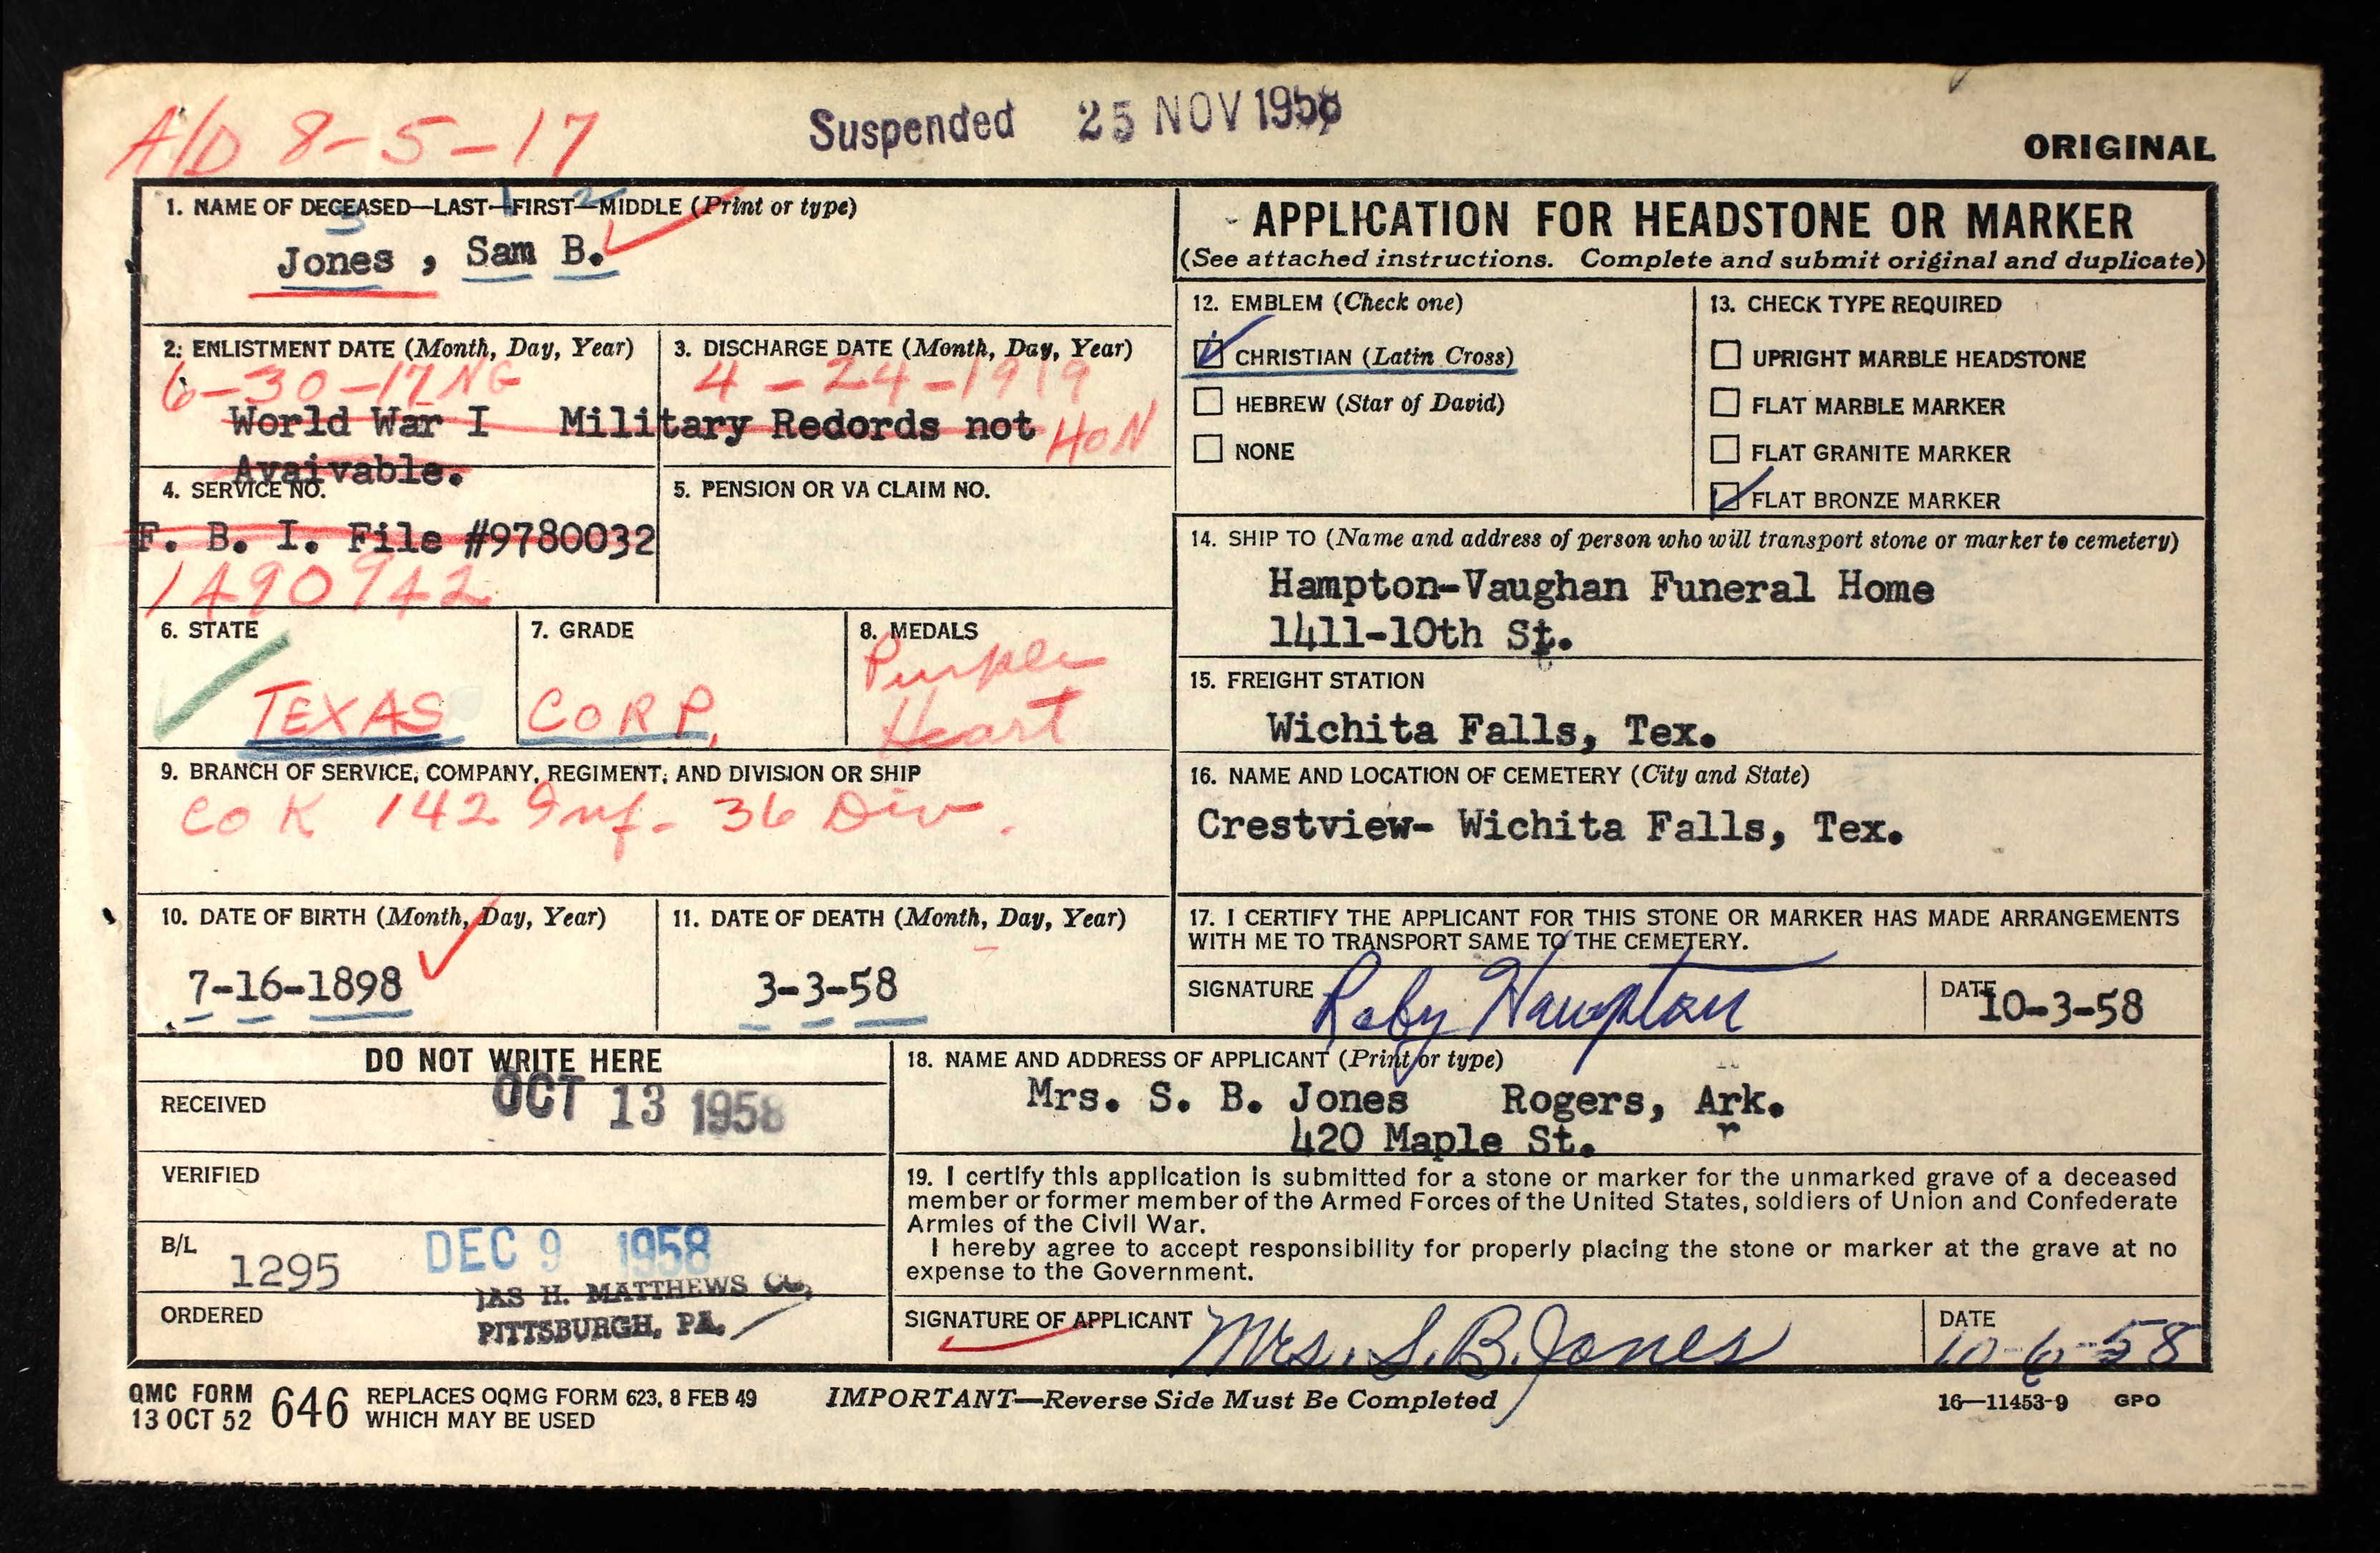 A/D 8-5-17
Suspended 25 NOV 1958
ORIGINAL
1. NAME OF DECEASED—LAST—FIRST—MIDDLE (Print or type)
1 2
3
Jones , Sam B.
2. ENLISTMENT DATE (Month, Day, Year)
6-30-17 NG
3. DISCHARGE DATE (Month, Day, Year)
4-24-1919
World War I Military Redords not HON
Avaivable.
4. SERVICE NO.
F. B. I. File #9780032
1490942
5. PENSION OR VA CLAIM NO.
6. STATE
TEXAS
7. GRADE
CORP.
8. MEDALS
Purple
Heart
9. BRANCH OF SERVICE, COMPANY, REGIMENT, AND DIVISION OR SHIP
Co K 142 Inf - 36 Div.
10. DATE OF BIRTH (Month, Day, Year)
7-16-1898
11. DATE OF DEATH (Month, Day, Year)
3-3-58
APPLICATION FOR HEADSTONE OR MARKER
(See attached instructions. Complete and submit original and duplicate)
12. EMBLEM (Check one)
CHRISTIAN (Latin Cross)
HEBREW (Star of David)
NONE
13. CHECK TYPE REQUIRED
UPRIGHT MARBLE HEADSTONE
FLAT MARBLE MARKER
FLAT GRANITE MARKER
FLAT BRONZE MARKER
14. SHIP TO (Name and address of person who will transport stone or marker to cemetery)
Hampton-Vaughan Funeral Home
1411-10th St.
15. FREIGHT STATION
Wichita Falls, Tex.
16. NAME AND LOCATION OF CEMETERY (City and State)
Crestview- Wichita Falls, Tex.
17. I CERTIFY THE APPLICANT FOR THIS STONE OR MARKER HAS MADE ARRANGEMENTS
WITH ME TO TRANSPORT SAME TO THE CEMETERY.
SIGNATURE Roby Hampton
DATE 10-3-58
DO NOT WRITE HERE
RECEIVED OCT 13 1958
VERIFIED
B/L 1295 DEC 9 1958
JAS H. MATTHEWS CO,
ORDERED PITTSBURGH, PA.
18. NAME AND ADDRESS OF APPLICANT (Print or type)
Mrs. S. B. Jones Rogers, Ark.
420 Maple St. r
19. I certify this application is submitted for a stone or marker for the unmarked grave of a deceased
member or former member of the Armed Forces of the United States, soldiers of Union and Confederate
Armies of the Civil War.
I hereby agree to accept responsibility for properly placing the stone or marker at the grave at no
expense to the Government.
SIGNATURE OF APPLICANT Mrs. S. B. Jones
DATE 10-6-58
QMC FORM 646 REPLACES OQMG FORM 623, 8 FEB 49
13 OCT 52 WHICH MAY BE USED
IMPORTANT—Reverse Side Must Be Completed
16—11453-9 GPO